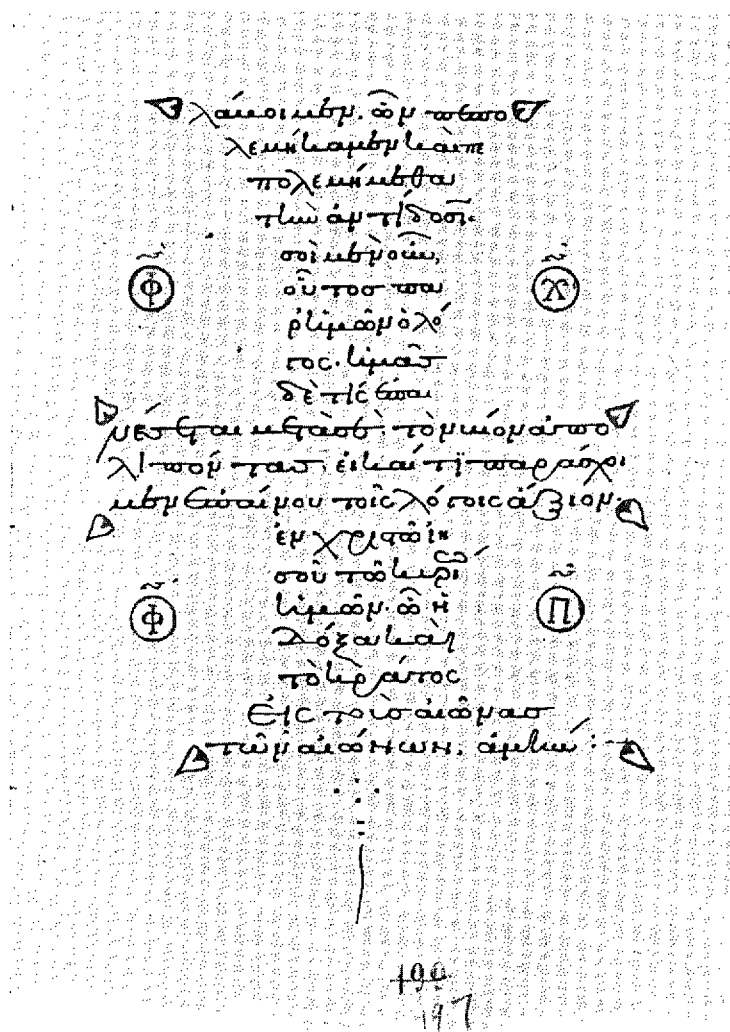 λάκοιμεν. ὧν πεπο
λεμήκαμεν καὶ πε
πολεμήμεθα
τὴν ἀντίδοσιν.
σοὶ μὲν οὖν,
Φ οὗτος πα Χ
ρ' ἡμῶν ὁ λό
γος. ἡμᾶς
δὲ τίς ἐπαι
νέσεται μετὰ σὲ, τὸν βίον ἀπο
λιπόντας, εἰ καί τι παράσχοι
μεν ἐπαίνου τοῖς λόγοις ἄξιον.
ἐν χριστῷ ἰη
σοῦ τῷ κυρίῳ
Φ ἡμῶν. ᾧ ἡ Π
δόξα καὶ
τὸ κράτος
εἰς τοὺς αἰῶνας
τῶν αἰώνων. ἀμήν:
197